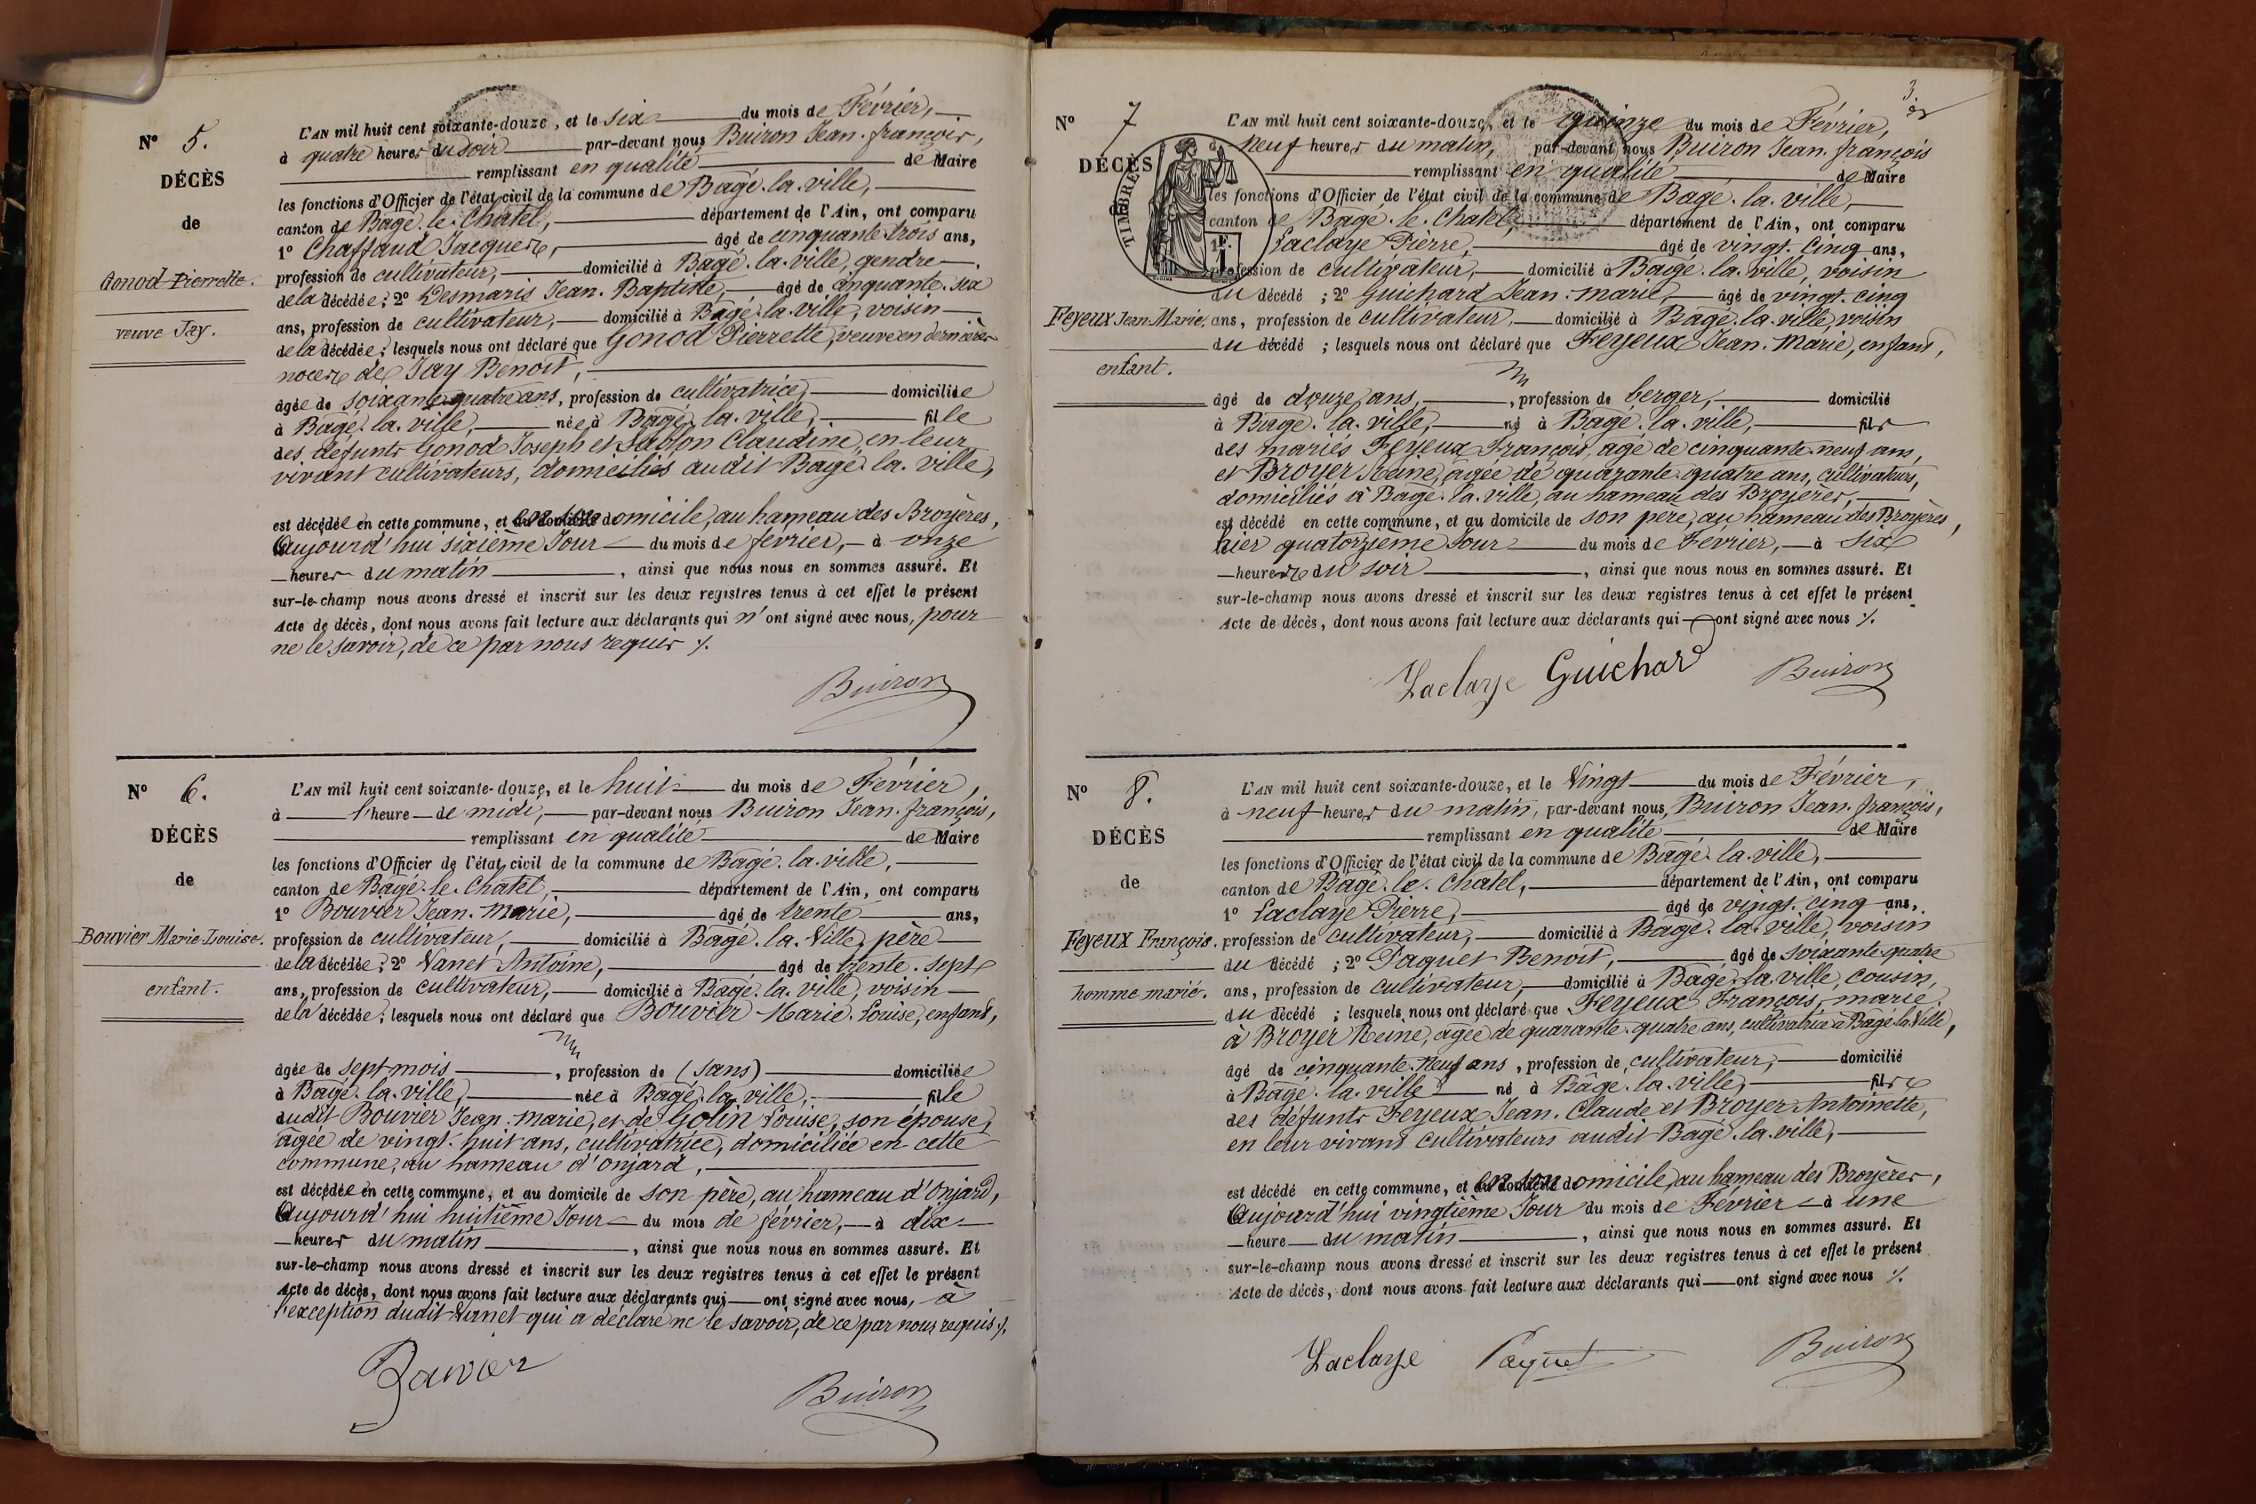 N° 5.
DÉCÈS
de
Gonod Pierrette.
veuve Jay.
L'AN mil huit cent soixante-douze, et le six du mois de Février,
à quatre heures du soir par-devant nous Buiron Jean-françois,
remplissant en qualité de Maire
les fonctions d'Officier de l'état civil de la commune de Bagé-la-ville,
canton de Bagé-le-Chatel, département de l'Ain, ont comparu
1° Chaffaud Jacques, âgé de cinquante-trois ans,
profession de cultivateur, domicilié à Bagé-la-ville, gendre
de la décédée; 2° Desmaris Jean-Baptiste, âgé de cinquante-six
ans, profession de cultivateur, domicilié à Bagé-la-ville, voisin
de la décédée; lesquels nous ont déclaré que Gonod Pierrette, veuve en dernières
noces de Jay Benoit,
âgée de soixante-quatre ans, profession de cultivatrice, domiciliée
à Bagé-la-ville, née à Bagé-la-ville, fille
des défunts Gonod Joseph et Sablon Claudine, en leur
vivant cultivateurs, domiciliés audit Bagé-la-ville,
est décédée en cette commune, et en son domicile, au hameau des Broyères,
Aujourd'hui sixième Jour du mois de février, à onze
heures du matin, ainsi que nous nous en sommes assuré. Et
sur-le-champ nous avons dressé et inscrit sur les deux registres tenus à cet effet le présent
Acte de décès, dont nous avons fait lecture aux déclarants qui n'ont signé avec nous, pour
ne le savoir, de ce par nous requis ./.
Buiron
N° 6.
DÉCÈS
de
Bouvier Marie-Louise.
enfant.
L'AN mil huit cent soixante-douze, et le huit du mois de Février,
à l'heure de midi, par-devant nous Buiron Jean-françois,
remplissant en qualité de Maire
les fonctions d'Officier de l'état civil de la commune de Bagé-la-ville,
canton de Bagé-le-Chatel, département de l'Ain, ont comparu
1° Bouvier Jean-Marie, âgé de trente ans,
profession de cultivateur, domicilié à Bagé-la-Ville, père
de la décédée; 2° Vanet Antoine, âgé de trente-sept
ans, profession de cultivateur, domicilié à Bagé-la-ville, voisin
de la décédée; lesquels nous ont déclaré que Bouvier Marie-Louise, enfant,
âgée de sept mois, profession de (sans) domiciliée
à Bagé-la-ville, née à Bagé-la-ville, fille
dudit Bouvier Jean-Marie, et de Golin Louise, son épouse,
âgée de vingt-huit ans, cultivatrice, domiciliée en cette
commune, au hameau d'Onjard,
est décédée en cette commune, et au domicile de son père, au hameau d'Onjard,
Aujourd'hui huitième Jour du mois de février, à dix
heures du matin, ainsi que nous nous en sommes assuré. Et
sur-le-champ nous avons dressé et inscrit sur les deux registres tenus à cet effet le présent
Acte de décès, dont nous avons fait lecture aux déclarants qui ont signé avec nous, à
l'exception dudit Vanet qui a déclaré ne le savoir, de ce par nous requis ./.
Bouvier
Buiron
3.
N° 7
DÉCÈS
TIMBRE
1 F.
Feyeux Jean-Marie.
enfant.
L'AN mil huit cent soixante-douze, et le quinze du mois de Février,
neuf heures du matin, par-devant nous Buiron Jean-françois
remplissant en qualité de Maire
les fonctions d'Officier de l'état civil de la commune de Bagé-la-ville,
canton de Bagé-le-Chatel, département de l'Ain, ont comparu
1° Laclaye Pierre, âgé de vingt-cinq ans,
profession de cultivateur, domicilié à Bagé-la-ville, voisin
du décédé; 2° Guichard Jean-Marie, âgé de vingt-cinq
ans, profession de cultivateur, domicilié à Bagé-la-ville, voisin
du décédé; lesquels nous ont déclaré que Feyeux Jean-Marie, enfant,
âgé de douze ans, profession de berger, domicilié
à Bagé-la-ville, né à Bagé-la-ville, fils
des mariés Feyeux François, âgé de cinquante-neuf ans,
et Broyer Reine, âgée de quarante-quatre ans, cultivateurs,
domiciliés à Bagé-la-ville, au hameau des Broyères,
est décédé en cette commune, et au domicile de son père, au hameau des Broyères,
hier quatorzième Jour du mois de Février, à six
heures du soir, ainsi que nous nous en sommes assuré. Et
sur-le-champ nous avons dressé et inscrit sur les deux registres tenus à cet effet le présent
Acte de décès, dont nous avons fait lecture aux déclarants qui ont signé avec nous ./.
Laclaye Guichard Buiron
N° 8.
DÉCÈS
de
Feyeux François.
homme marié.
L'AN mil huit cent soixante-douze, et le Vingt du mois de Février,
à neuf heures du matin, par-devant nous Buiron Jean-françois,
remplissant en qualité de Maire
les fonctions d'Officier de l'état civil de la commune de Bagé-la-ville,
canton de Bagé-le-Chatel, département de l'Ain, ont comparu
1° Laclaye Pierre, âgé de vingt-cinq ans,
profession de cultivateur, domicilié à Bagé-la-ville, voisin
du décédé; 2° Paquet Benoit, âgé de soixante-quatre
ans, profession de cultivateur, domicilié à Bagé-la-ville, cousin,
du décédé; lesquels nous ont déclaré que Feyeux François, marié
à Broyer Reine, âgée de quarante-quatre ans, cultivatrice à Bagé-la-Ville,
âgé de cinquante-neuf ans, profession de cultivateur, domicilié
à Bagé-la-ville, né à Bâgé-la-ville, fils
des défunts Feyeux Jean-Claude et Broyer Antoinette,
en leur vivant cultivateurs audit Bagé-la-ville,
est décédé en cette commune, et en son domicile, au hameau des Broyères,
Aujourd'hui vingtième Jour du mois de Février à une
heure du matin, ainsi que nous nous en sommes assuré. Et
sur-le-champ nous avons dressé et inscrit sur les deux registres tenus à cet effet le présent
Acte de décès, dont nous avons fait lecture aux déclarants qui ont signé avec nous ./.
Laclaye Paquet Buiron